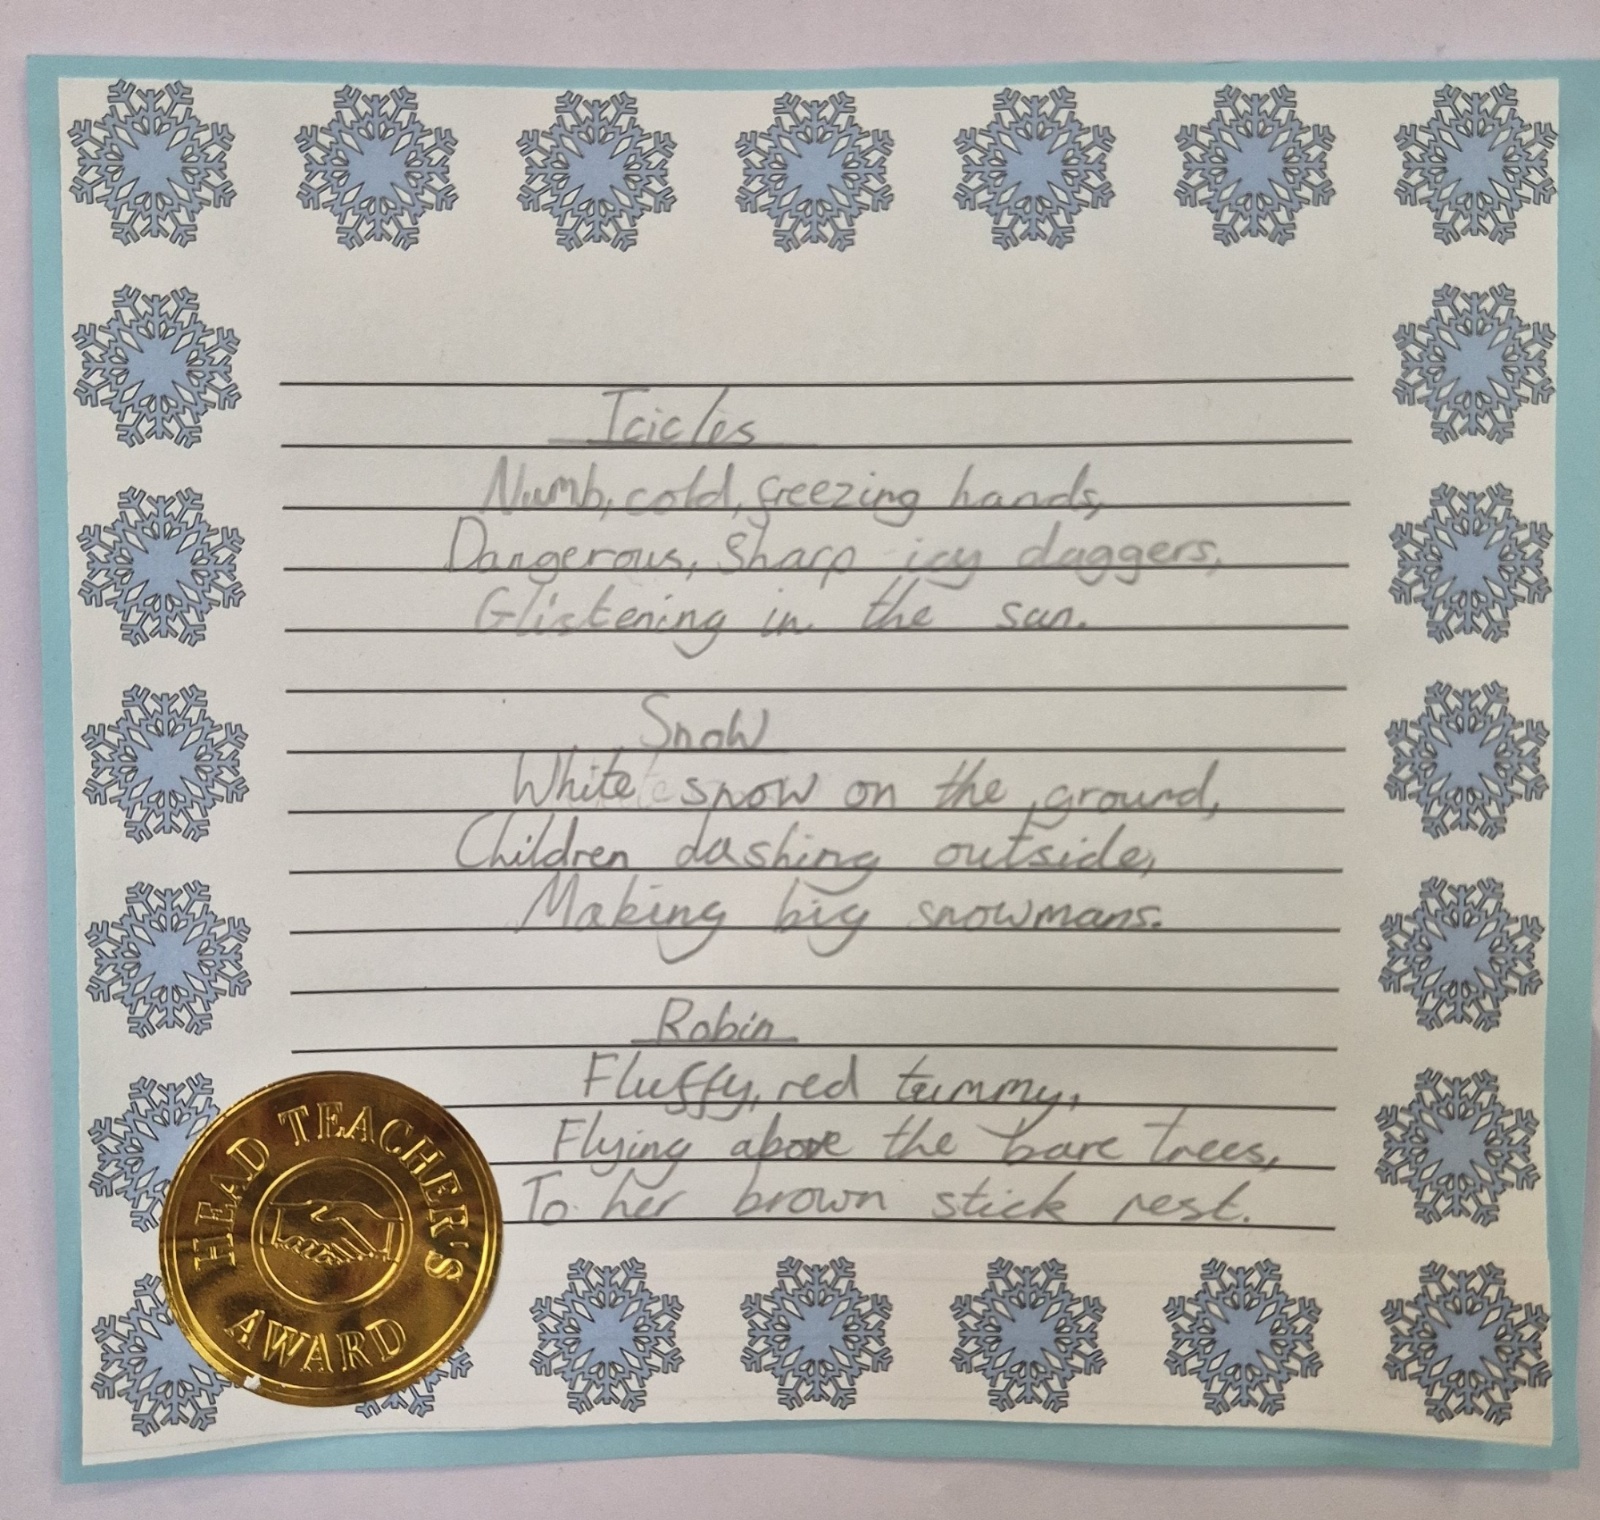 Icicles
Numb, cold, freezing hands,
Dangerous, Sharp icy daggers,
Glistening in the sun.
Snow
White snow on the ground,
Children dashing outside,
Making big snowmans.
Robin
Fluffy, red tummy,
Flying above the bare trees,
To her brown stick nest.
HEAD TEACHER'S
AWARD